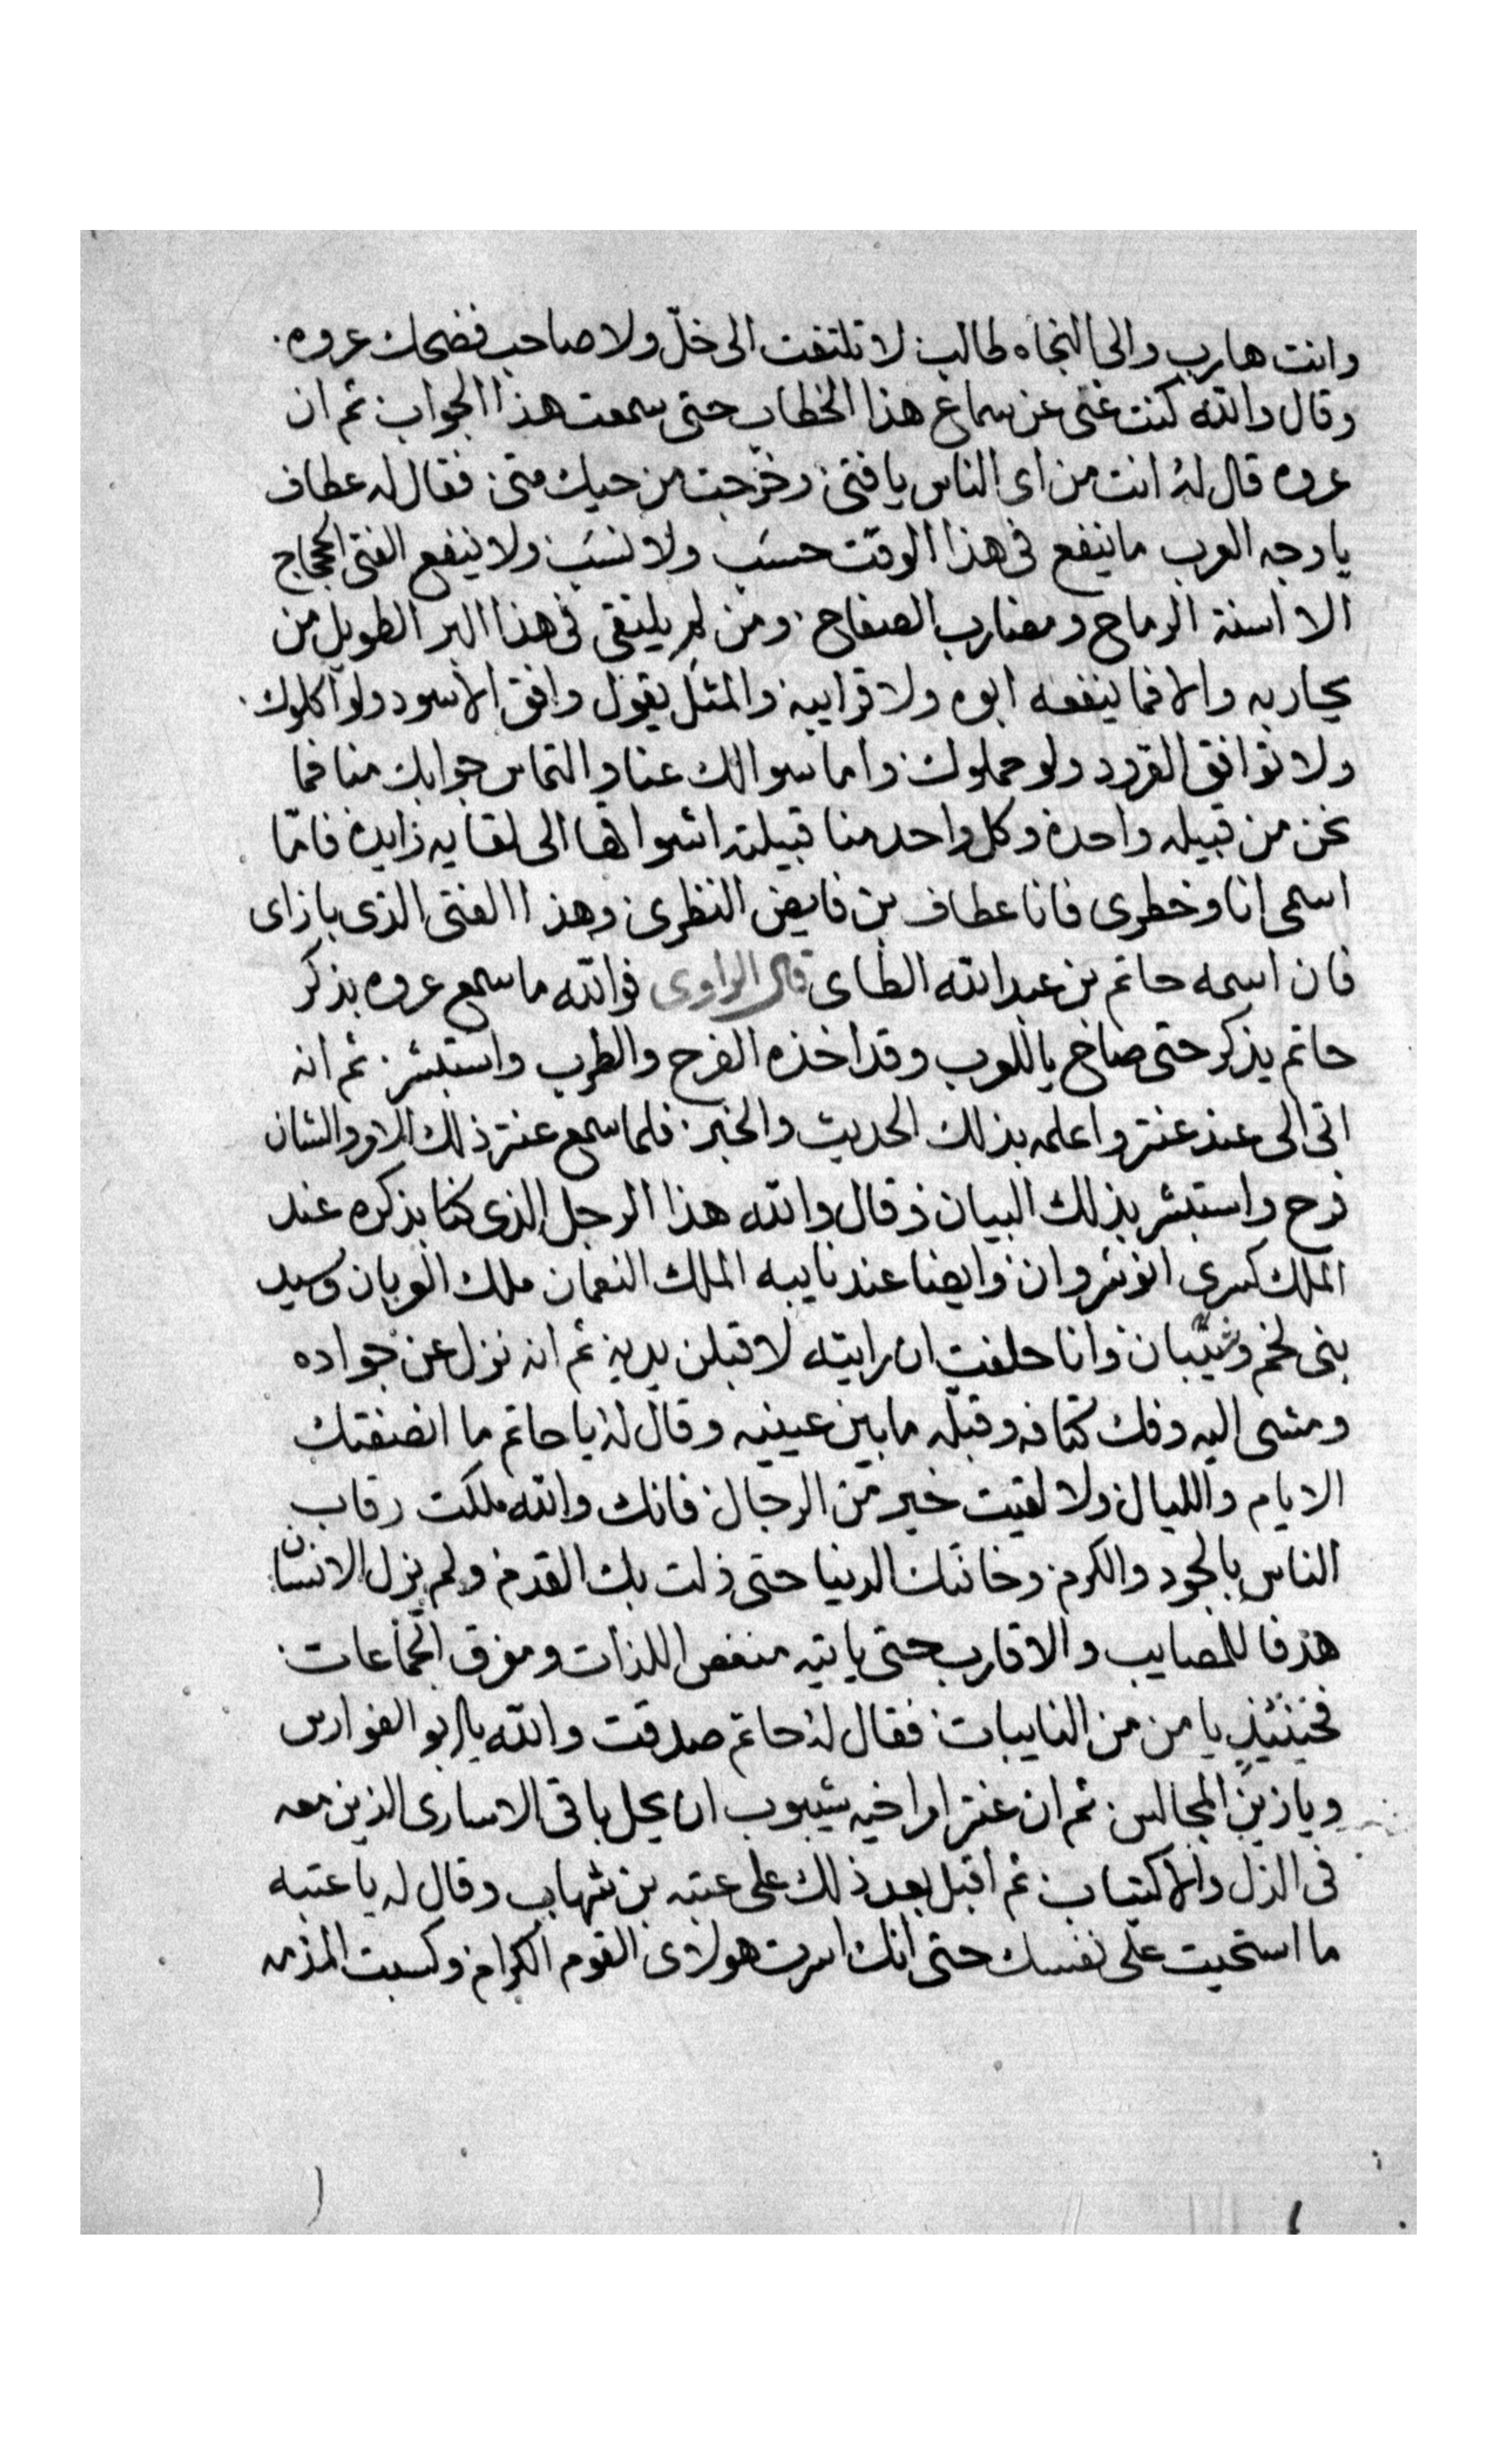 وانت هارب والى النجاه طالب لا تلتفت الى خلّ ولا صاحب فضحك عروه
وقال والله كنت غنى عن سماع هذا الخطاب حتى سمعت هذا الجواب ثم ان
عروه قال له انت من اى الناس يا فتى وخرجت من حيك متى فقال له عطاف
يا وجه العرب ما ينفع فى هذا الوقت حسَب ولا نسَب ولا ينفع الفتى الججاج
الا اسنة الرماح ومضارب الصفاح ومن لم يلتقى فى هذا البر الطويل من
يحاربه والا فما ينفعه ابوه ولا قرايبه والمثل يقول وافق الاسود ولو اكلوك
ولا توافق القرود ولو حملوك واما سوالك عنا والتماس جوابك منا فما
نحن من قبيله واحدة وكل واحد منا قبيلته اشواقها الى لقايه زايدة فامّا
اسمى انا وخطرى فانا عطاف بن فايض النظرى وهذا الفتى الذى بازاى
فان اسمه حاتم بن عبد الله الطاى قال الراوى فوالله ما سمع عروه بذكر
حاتم يذكر حتى صاح ياللعرب وقد اخذه الفرح والطرب واستبشر ثم انه
اتى الى عند عنتر واعلمه بذلك الحديث والخبر فلما سمع عنتر ذلك الامر والشان
فرح واستبشر بذلك البيان وقال والله هذا الرجل الذى كنا بذكره عند
الملك كسرى انوشروان وايضا عند نايبه الملك النعمان ملك العربان وسيد
بنى لخم وشيبان وانا حلفت ان رايته لاقبلن يديه ثم انه نزل عن جواده
ومشى اليه وفك كتافه وقبله ما بين عينيه وقال له يا حاتم ما انصفتك
الايام والليال ولا لقيت خير من الرجال فانك والله ملكت رقاب
الناس بالجود والكرم وخانتك الدنيا حتى زلت بك القدم ولم يزل الانسان
هدفا للمصايب والاقارب حتى ياتيه منغص اللذات ومفرق الجماعات
فحينئذٍ يامن من النايبات فقال له حاتم صدقت والله يابو الفوارس
ويا زين المجالس ثم ان عنتر امر اخيه شيبوب ان يحل باقى الاسارى الذين معه
فى الذل والاكتياب ثم اقبل بعد ذلك على عتبه بن شهاب وقال له يا عتبه
ما استحيت على نفسك حتى انك اسرت هولاى القوم الكرام وكسبت المذمه